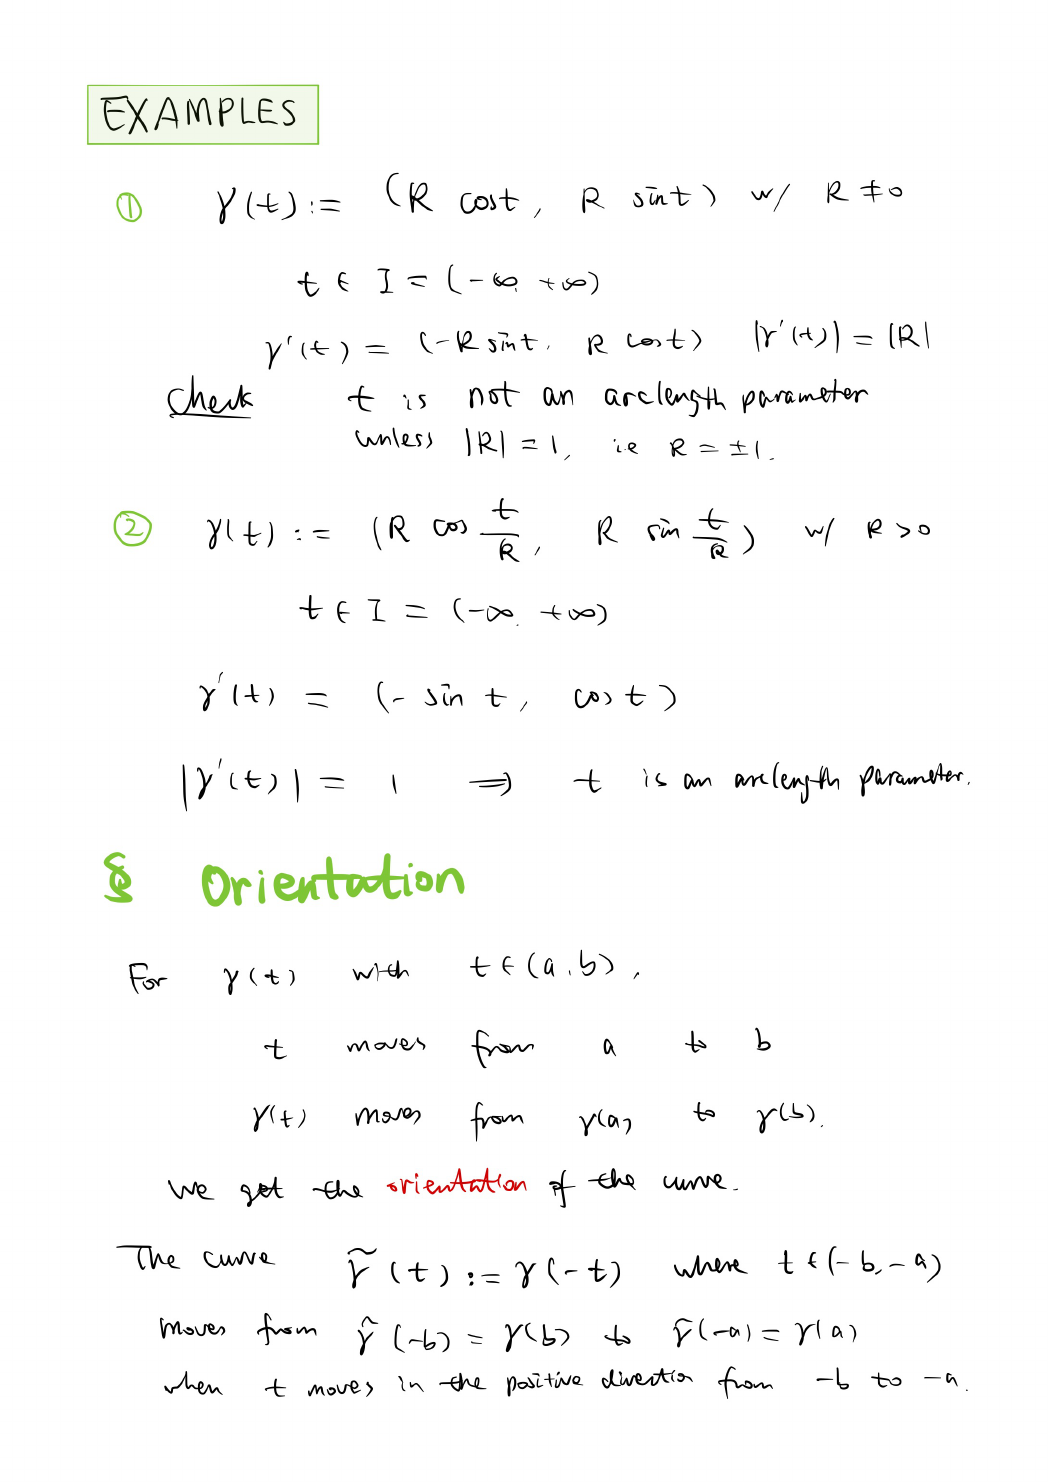 EXAMPLES
① γ(t) := (R cost, R sint) w/ R ≠ 0
t ∈ I = (-∞, +∞)
γ'(t) = (-R sint, R cost) |γ'(t)| = |R|
Check t is not an arclength parameter
unless |R| = 1, i.e R = ±1.
② γ(t) := (R cos t/R, R sin t/R) w/ R > 0
t ∈ I = (-∞, +∞)
γ'(t) = (- sin t, cos t)
|γ'(t)| = 1 ⟹ t is an arclength parameter.
§ Orientation
For γ(t) with t ∈ (a, b),
t moves from a to b
γ(t) moves from γ(a) to γ(b).
We get the orientation of the curve.
The curve γ̃(t) := γ(-t) where t ∈ (-b, -a)
moves from γ̃(-b) = γ(b) to γ̃(-a) = γ(a)
when t moves in the positive direction from -b to -a.